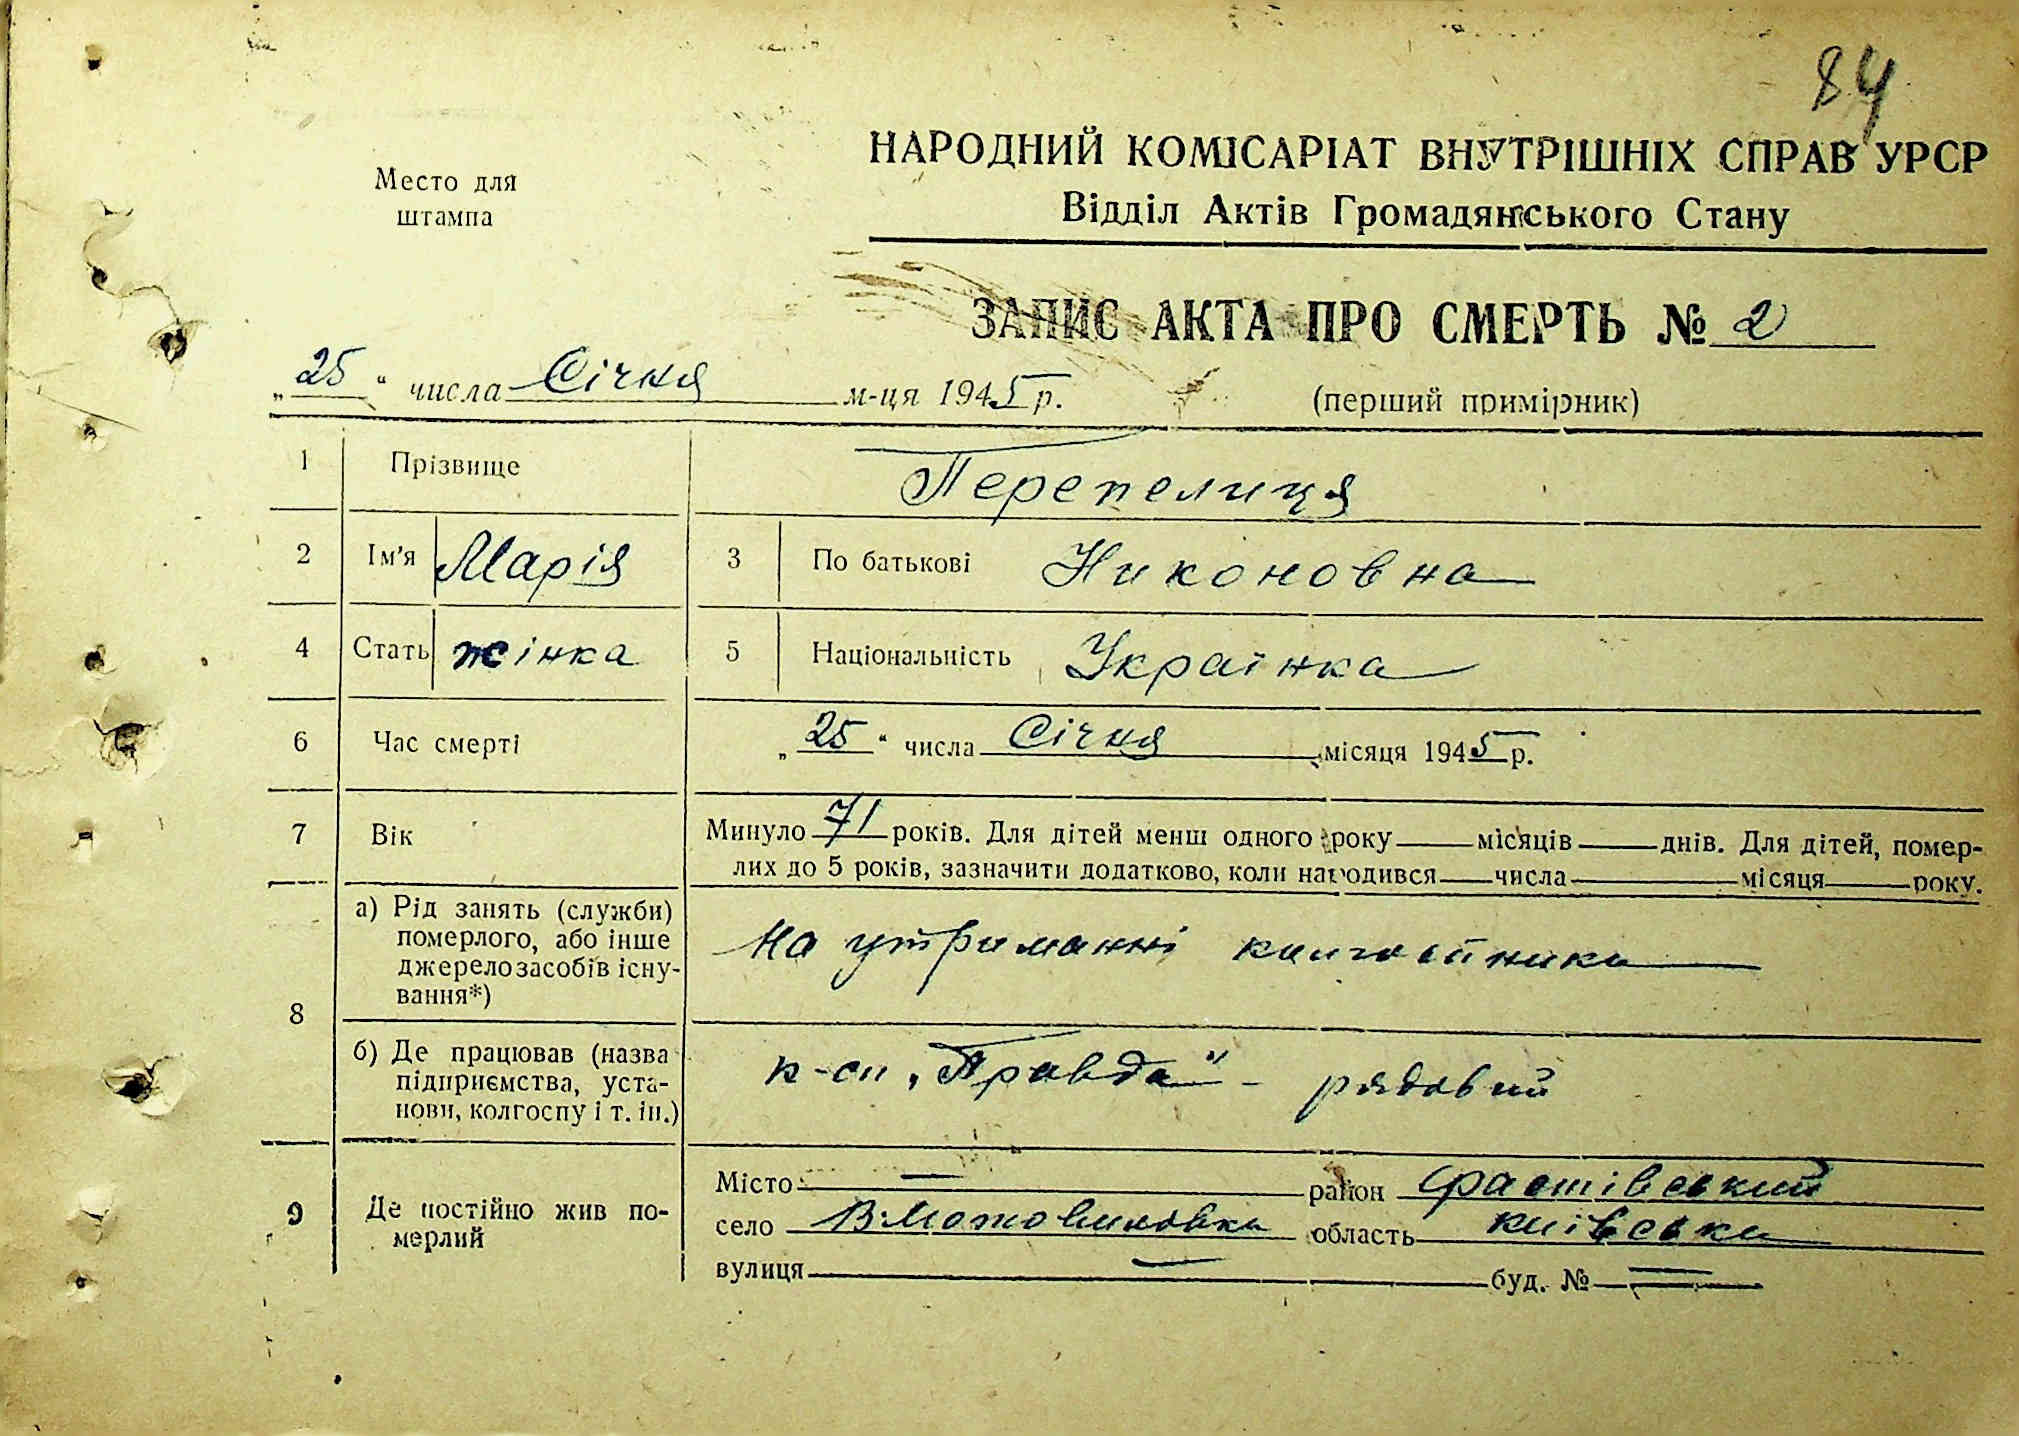 84
НАРОДНИЙ КОМІСАРІАТ ВНУТРІШНІХ СПРАВ УРСР
Место для
штампа
Відділ Актів Громадянського Стану
ЗАПИС АКТА ПРО СМЕРТЬ № 2
„25“ числа Січня м-ця 1945 р.
(перший примірник)
1 Прізвище Перепелиця
2 Ім'я Марія 3 По батькові Никоновна
4 Стать жінка 5 Національність Українка
6 Час смерті „25“ числа Січня місяця 1945 р.
7 Вік Минуло 71 років. Для дітей менш одного року — місяців — днів. Для дітей, помер-
лих до 5 років, зазначити додатково, коли народився — числа — місяця — року.
8 а) Рід занять (служби)
померлого, або інше
джерело засобів існу-
вання*)
На утриманні колгоспника
б) Де працював (назва
підприємства, уста-
нови, колгоспу і т. ін.)
к-сп „Правда“ - рядовий
9 Де постійно жив по-
мерлий
Місто — район Фастівський
село В-Мотовиловка область Київська
вулиця — буд. № —